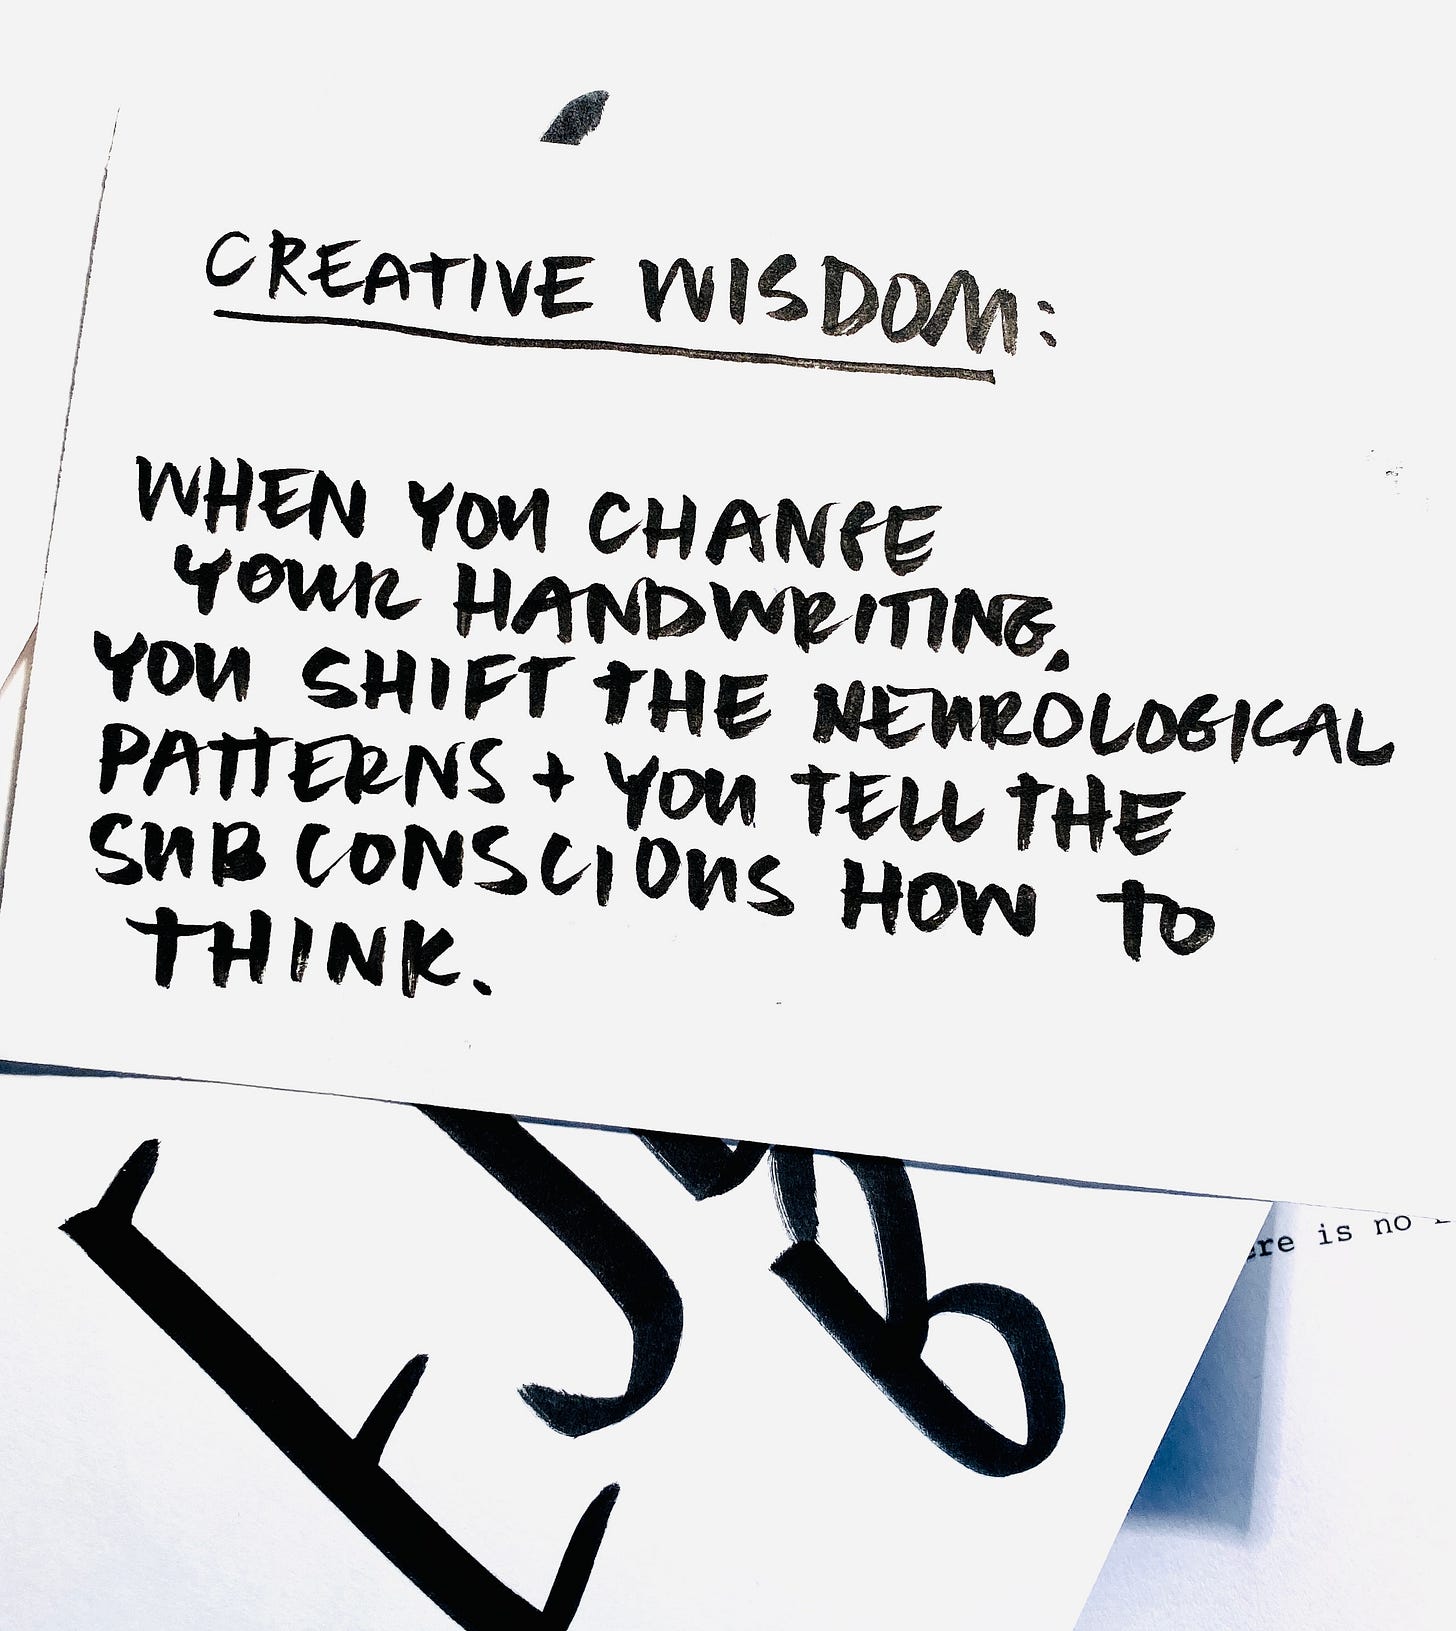 CREATIVE WISDOM:
WHEN YOU CHANGE
YOUR HANDWRITING,
YOU SHIFT THE NEUROLOGICAL
PATTERNS + YOU TELL THE
SUBCONSCIOUS HOW TO
THINK.
is no
E
B